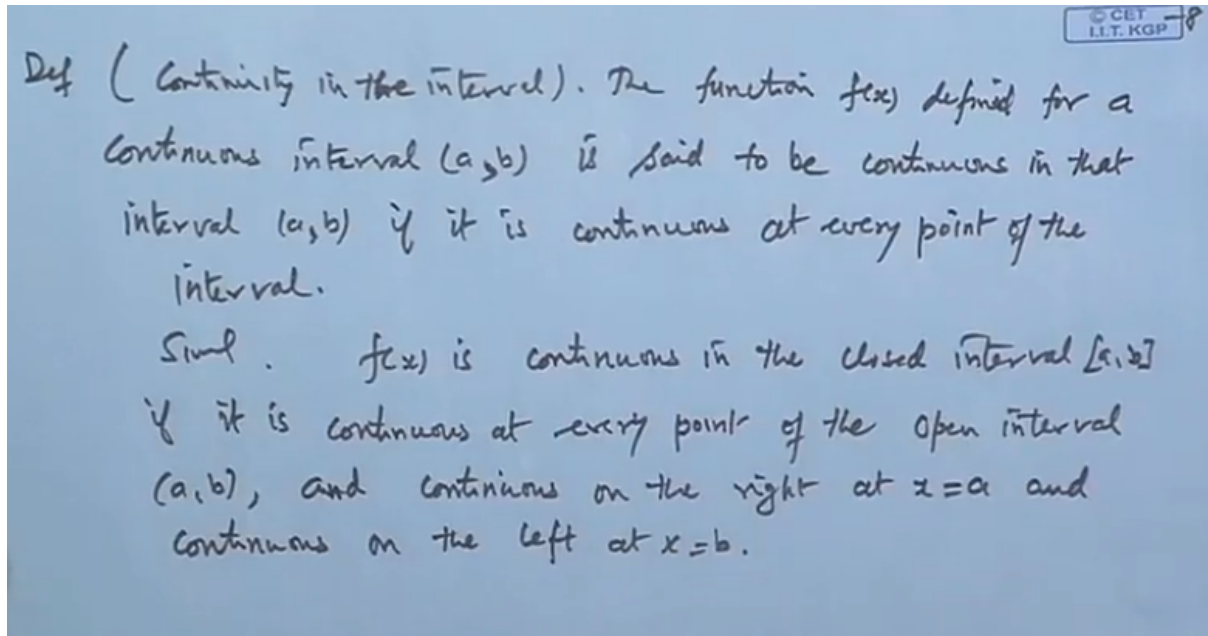 © CET
I.I.T. KGP -8
Def ( Continuity in the interval). The function f(x) defined for a
continuous interval (a,b) is said to be continuous in that
interval (a,b) if it is continuous at every point of the
interval.
Siml. f(x) is continuous in the closed interval [a,b]
if it is continuous at every point of the open interval
(a,b), and continuous on the right at x=a and
continuous on the left at x=b.